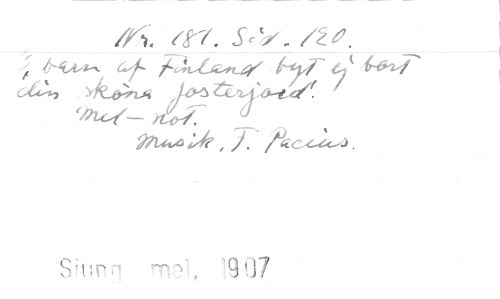 Nr. 181. Sid. 120.
O, barn af Finland byt ej bort
din sköna fosterjord!
Mel-not.
Musik, F. Pacius.
Sjung mel, 1907